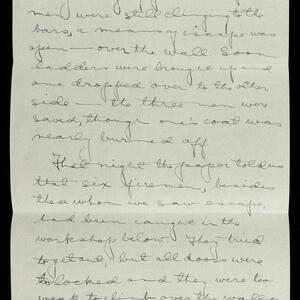 men were still clinging to the
bars, a means of escape was
open — over the wall. Soon
ladders were brought up and
one dropped over to the other
side — the three men were
saved, though one's coat was
nearly burned off.
That night the paper told us
that six firemen, besides
those whom we saw escape,
had been caught in the
workshop below. They tried
to get out, but all doors were
locked and they were too
weak to climb over the wall